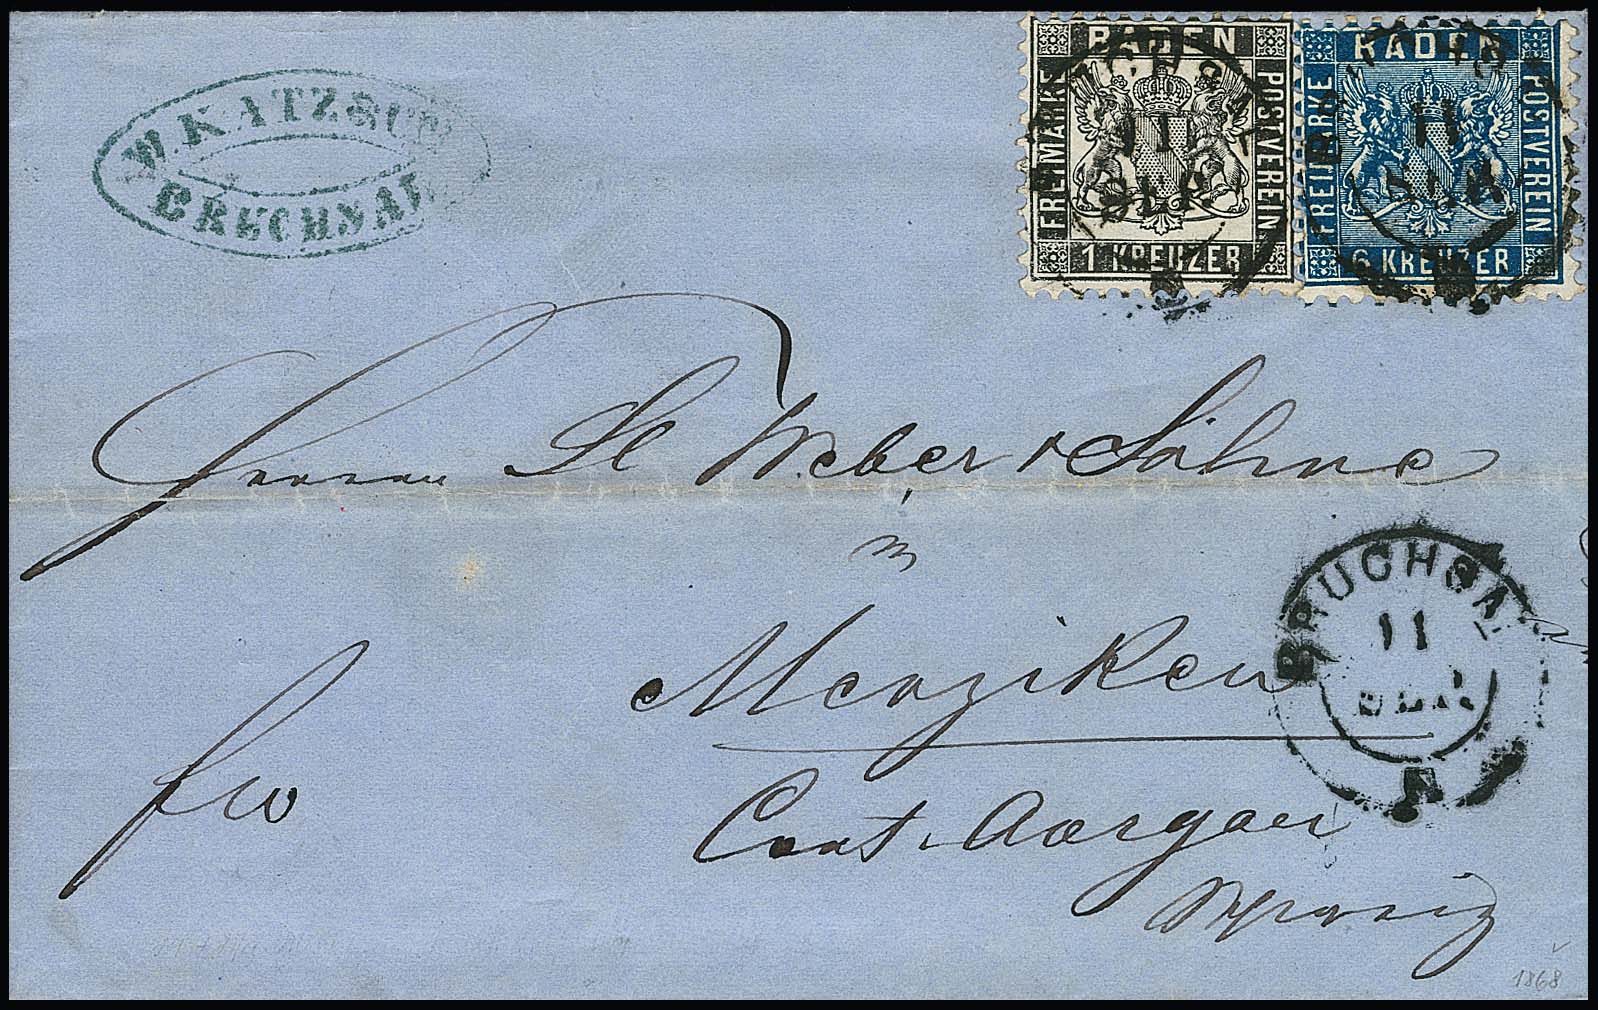 W. KATZ
BRUCHSAL
BADEN
FREIMARKE
POSTVEREIN
1 KREUZER
BRUCHSAL
11
SEP.
BADEN
FREIMARKE
POSTVEREIN
6 KREUZER
11
SEP.
Herren Sl Weber & Söhne
in
Menziken
Cant. Aargau
Schweiz
frco
BRUCHSAL
11
SEP.
1868